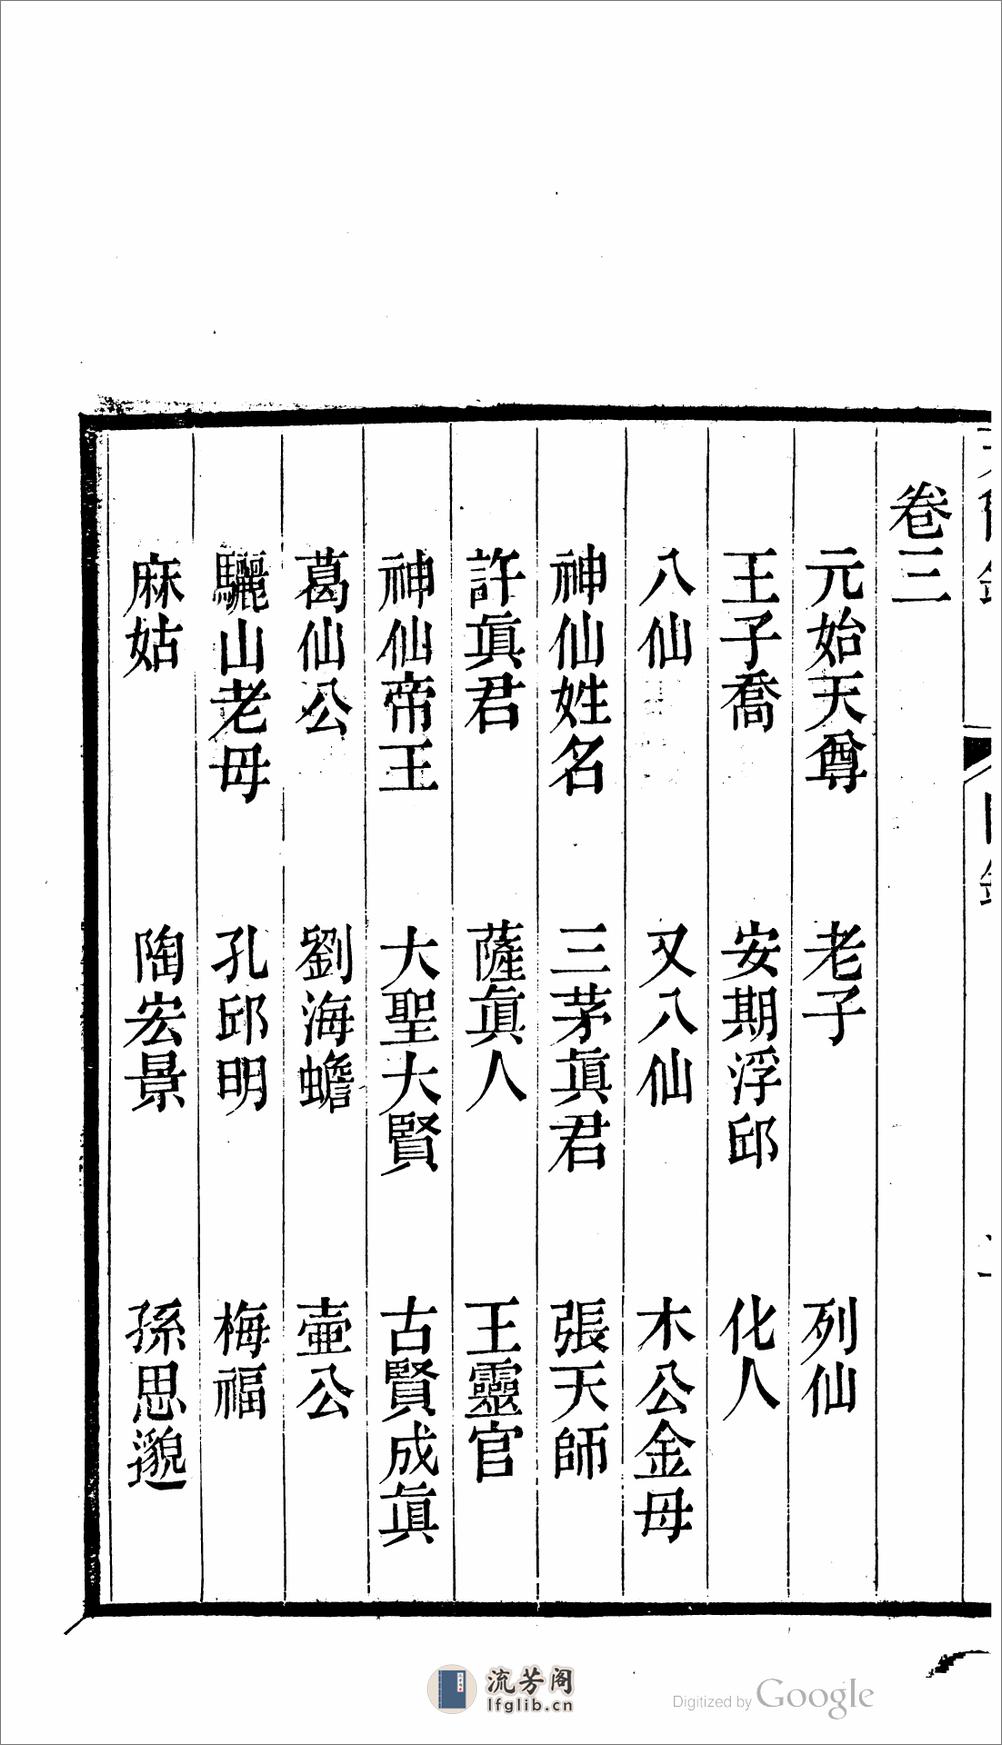 卷三
元始天尊 老子 列仙
王子喬 安期浮邱 化人
八仙 又八仙 木公金母
神仙姓名 三茅眞君 張天師
許眞君 薩眞人 王靈官
神仙帝王 大聖大賢 古賢成眞
葛仙公 劉海蟾 壷公
驪山老母 孔邱明 梅福
麻姑 陶宏景 孫思邈
流芳阁
lfglib.cn
Digitized by Google